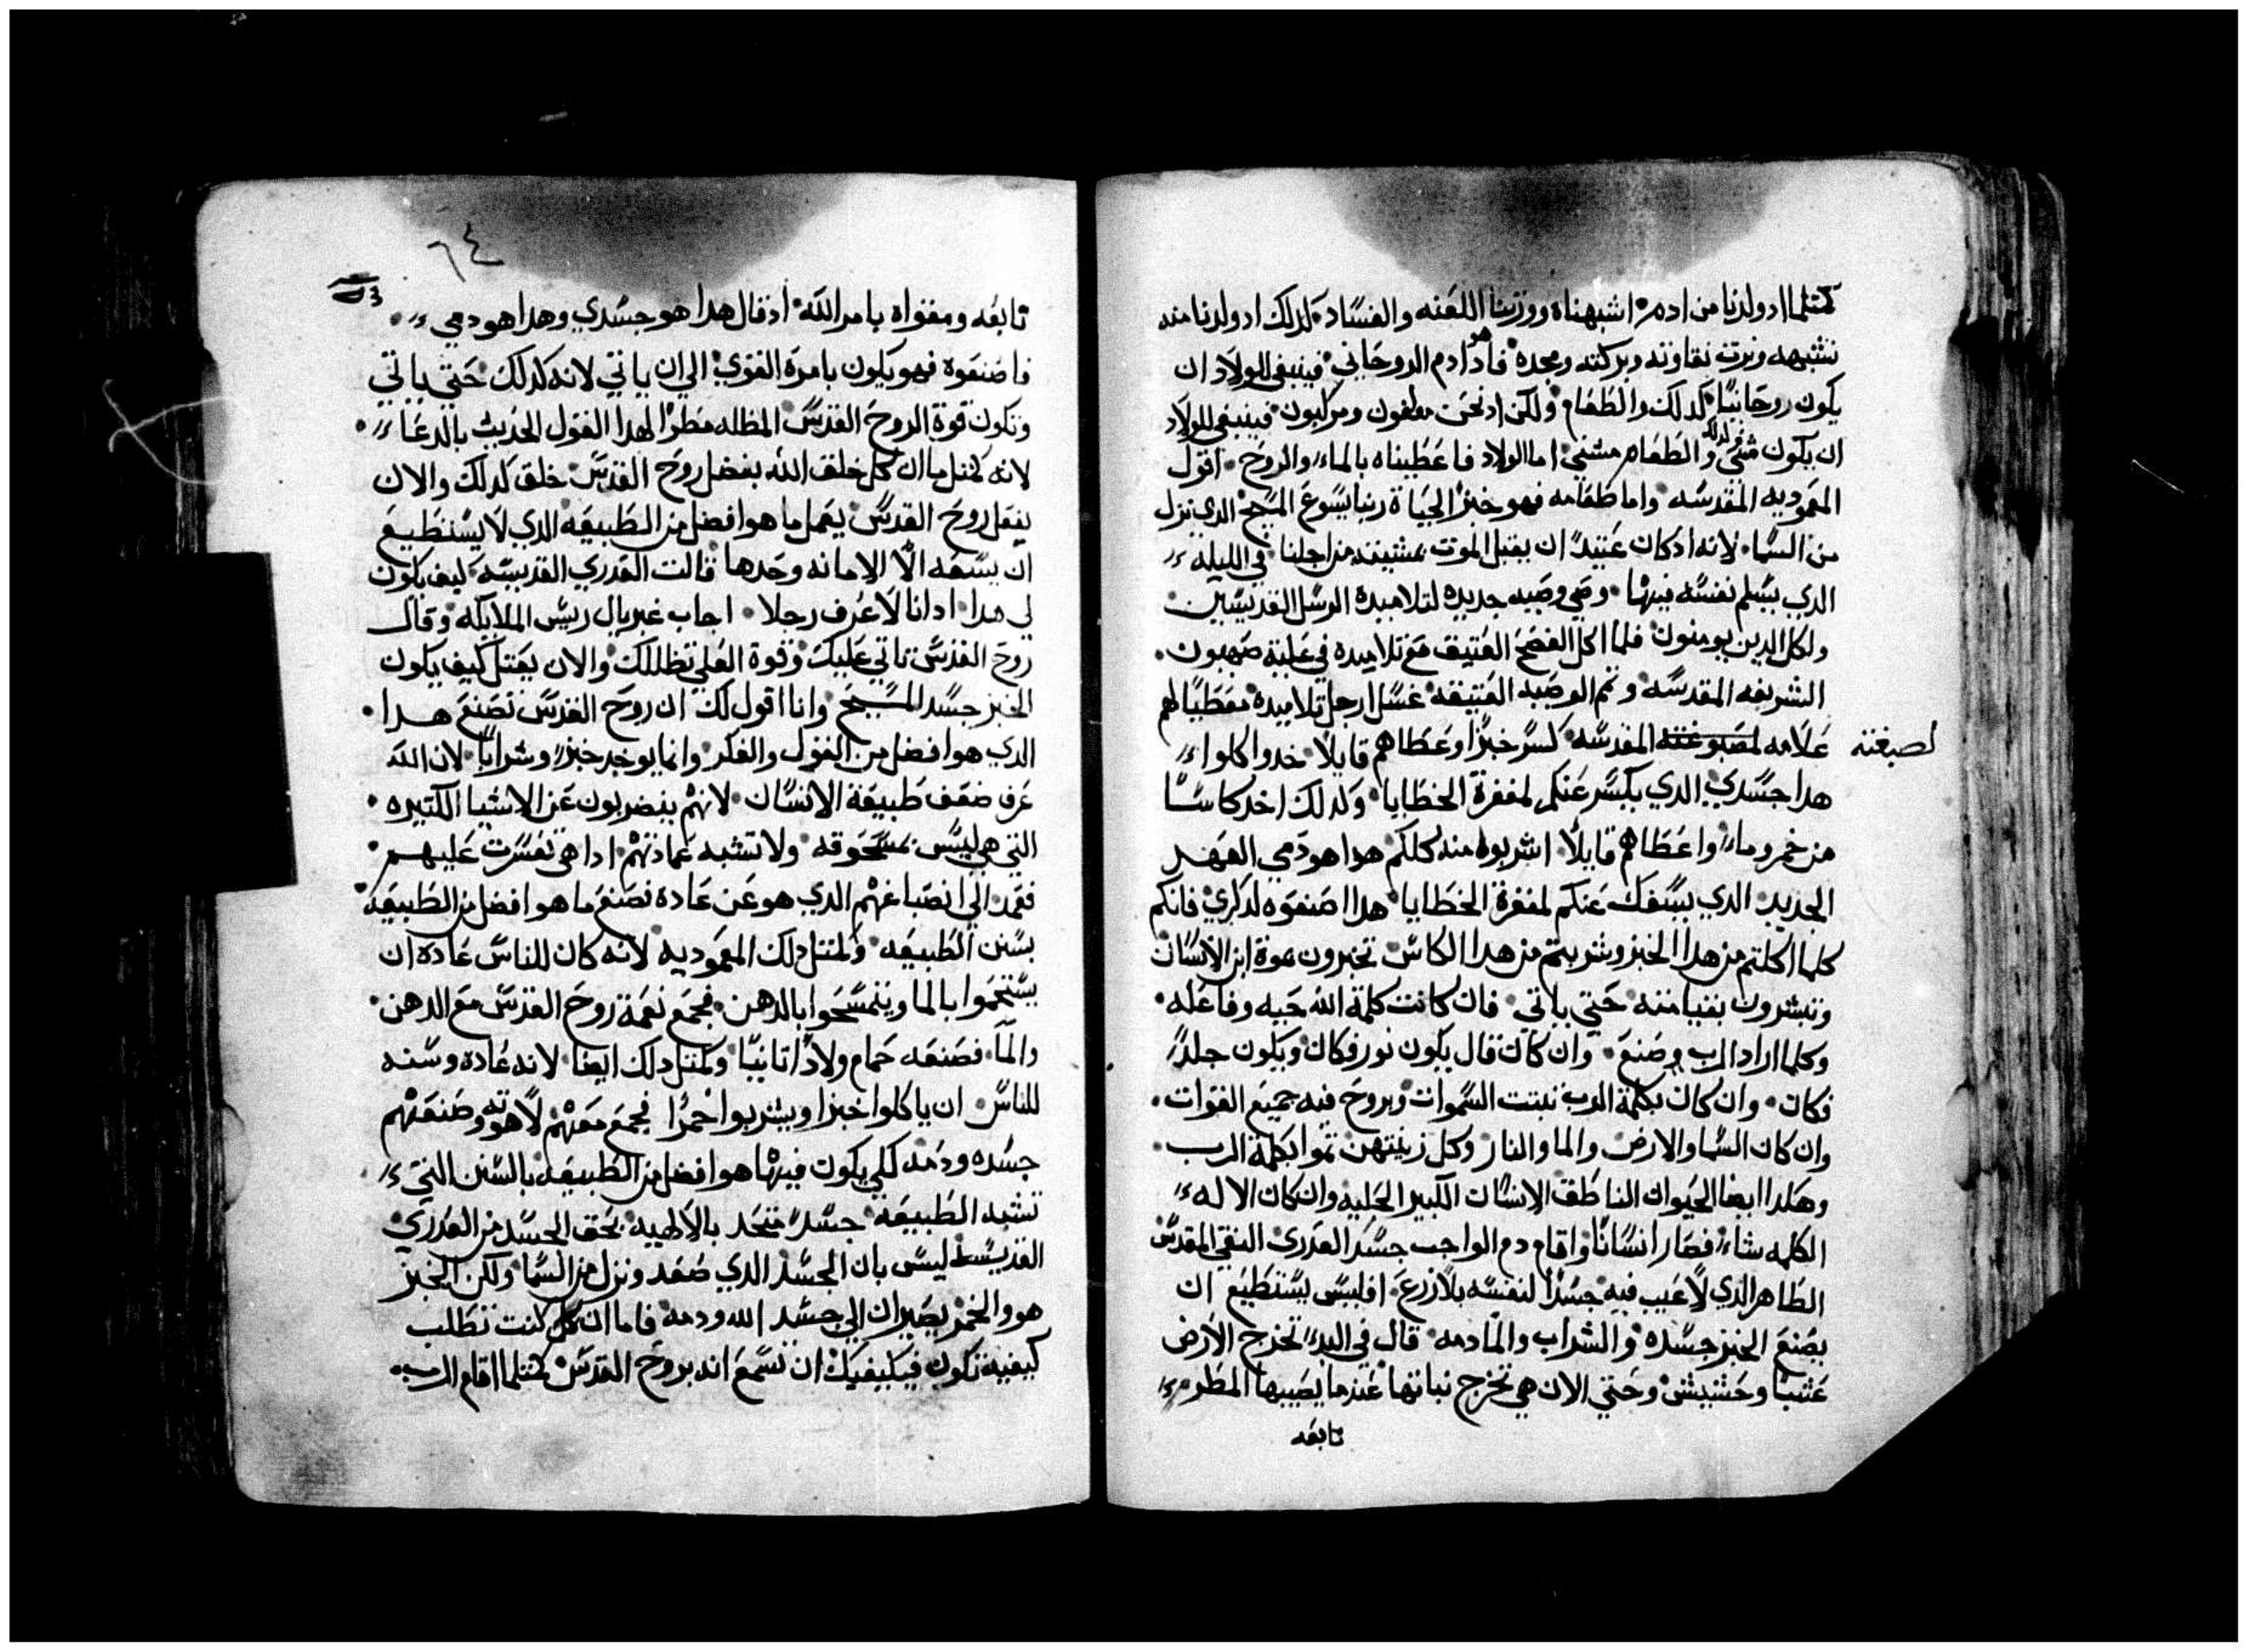 كمثلما اد ولدنا من ادم اشبهناه وورثنا اللعنه والفساد كدلك اد ولدنا منه
نشبهه ونرت نقاوته وبركته ومجده فادا هو ادم الروحاني فينبغي للولاد ان
يكون روحانيا كدلك والطعام ولكن اد نحن مولفون ومركبون فينبغي للولاد
ان يكون مثني وكدلك والطعام مثني اما الولاد فاعطيناه بالماء والروح اقول
المعموديه المقدسه واما طعامه فهو خبز الحياة ربنا يسوع المسيح الدي نزل
من السما لانه اد كان عتيدا ان يقبل الموت بمشيته من اجلنا في الليله
الدي يسلم نفسه فيها وصي وصيه جديده لتلاميده الرسل القديسين
ولكل الدين يومنون فلما اكل الفصح العتيق مع تلاميده في علية صهيون
الشريفه المقدسه وتمم الوصيه العتيقه غسل ارجل تلاميده معطيا لهم
علامه لصبوغته المقدسه كسر خبزا وعطاهم قايلا خدوا كلوا
لصبغته
هدا جسدي الدي يكسر عنكم لمغفرة الخطايا وكدلك اخد كاسا
من خمر وماء واعطاهم قايلا اشربوا منه كلكم هدا هو دمي العهد
الجديد الدي يسفك عنكم لمغفرة الخطايا هدا اصنعوه لدكري فانكم
كلما اكلتم من هدا الخبز وشربتم من هدا الكاس تخبرون بموة ابن الانسان
وتبشرون بقيامته حتي ياتي فان كانت كلمة الله حيه وفاعله
وكلما اراد الرب وصنع وان كان قال يكون نور فكان ويكون جلدا
فكان وان كان بكلمة الرب تبتت السموات وبروح فيه جميع القوات
وان كان السما والارض والما والنار وكل زينتهن تموا بكلمة الرب
وهكدا ايضا الحيوان الناطق الانسان الكبير الحليه وان كان الاله
الكلمه شاء فصار انسانا واقام دم الواجب جسد العدري النقي المقدس
الطاهر الدي لا عيب فيه جسدا لنفسه بلا زرع افليس يستطيع ان
يصنع الخبز جسده والشراب والما دمه قال في البدء تخرج الارض
عشبا وحشيش وحتي الان هي تخرج نباتها عندما يصيبها المطر
تابعه
٦٤
تابعه ومقواه بامر الله اد قال هدا هو جسدي وهدا هو دمي
فاصنعوه فهو يكون بامره القوي الي ان ياتي لانه كدلك حتي ياتي
وتكون قوة الروح القدس المظله مطرا لهدا القول الحديث بالدعاء
لانه كمثل ما ان كل خلق الله بفضل روح القدس خلق كدلك والان
بفعل روح القدس يعمل ما هو افضل من الطبيعه الدي لا يستطيع
ان يسعه الا الامانه وحدها قالت العدري القديسه كيف يكون
لي هدا ادانا لا عرف رجلا اجاب غبريال ريس الملايكه وقال
روح القدس تاتي عليك وقوة العلي تظللك والان يقتل كيف يكون
الخبز جسد المسيح وانا اقول لك ان روح القدس تصنع هدا
الدي هو افضل من القول والفكر وانما يوخد خبز وشرابا لان الله
عرف ضعف طبيعة الانسان لانهم ينضربون عن الاشيا الكتيره
التي هي ليس مسحوقه ولا تشبه عمادتهم ادا هي تعسرت عليهم
فعمد الي انصباغهم الدي هو عن عاده فصنع ما هو افضل من الطبيعه
بسنن الطبيعه وكمتل دلك المعموديه لانه كان للناس عاده ان
يستحموا بالما ويتمسحوا بالدهن فجمع نعمة روح القدس مع الدهن
والما فصنعه حمام ولادا تانيا وكمتل دلك ايضا لانه عاده وسنه
للناس ان ياكلوا خبزا ويشربوا خمرا فجمع معهم لاهوته وصنعهم
جسده ودمه لكي يكون فيها هو افضل من الطبيعه بالسنن التي
تشبه الطبيعه جسدا متحد بالالهيه بحق الجسد من العدري
القديسه ليس بان الجسد الدي صعد ونزل من السما ولكن الخبز
هو والخمر يصيران الي جسد الله ودمه فاما ان كل كنت تطلب
كيفية تكون فيكيفيك ان تسمع انه بروح القدس كمتلما اقام الرب